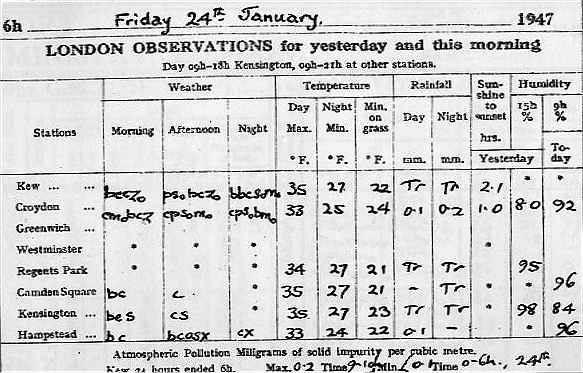 6h Friday 24th January. 1947
LONDON OBSERVATIONS for yesterday and this morning
Day 09h-18h Kensington, 09h-21h at other stations.
Stations Weather Temperature Rainfall Sun-shine to sunset Humidity
Morning Afternoon Night Day Max. Night Min. Min. on grass Day Night hrs. 15h % 9h %
° F. ° F. ° F. mm. mm. Yesterday To-day
Kew ... ... 35 27 22 Tr Tr 2.1 * *
Croydon ... 33 25 24 0.1 0.2 1.0 80 92
Greenwich ...
Westminster * * * *
Regents Park * * * 34 27 21 Tr Tr 95
Camden Square bc c. * 35 27 21 - Tr * * 96
Kensington ... cs * 35 27 23 Tr Tr * 98 84
Hampstead ... bc cx 33 24 22 0.1 - * 96
Atmospheric Pollution Miligrams of solid impurity per cubic metre.
24 hours ended 6h. Max. 0.2 Time Min. Time 0-6h., 24th.